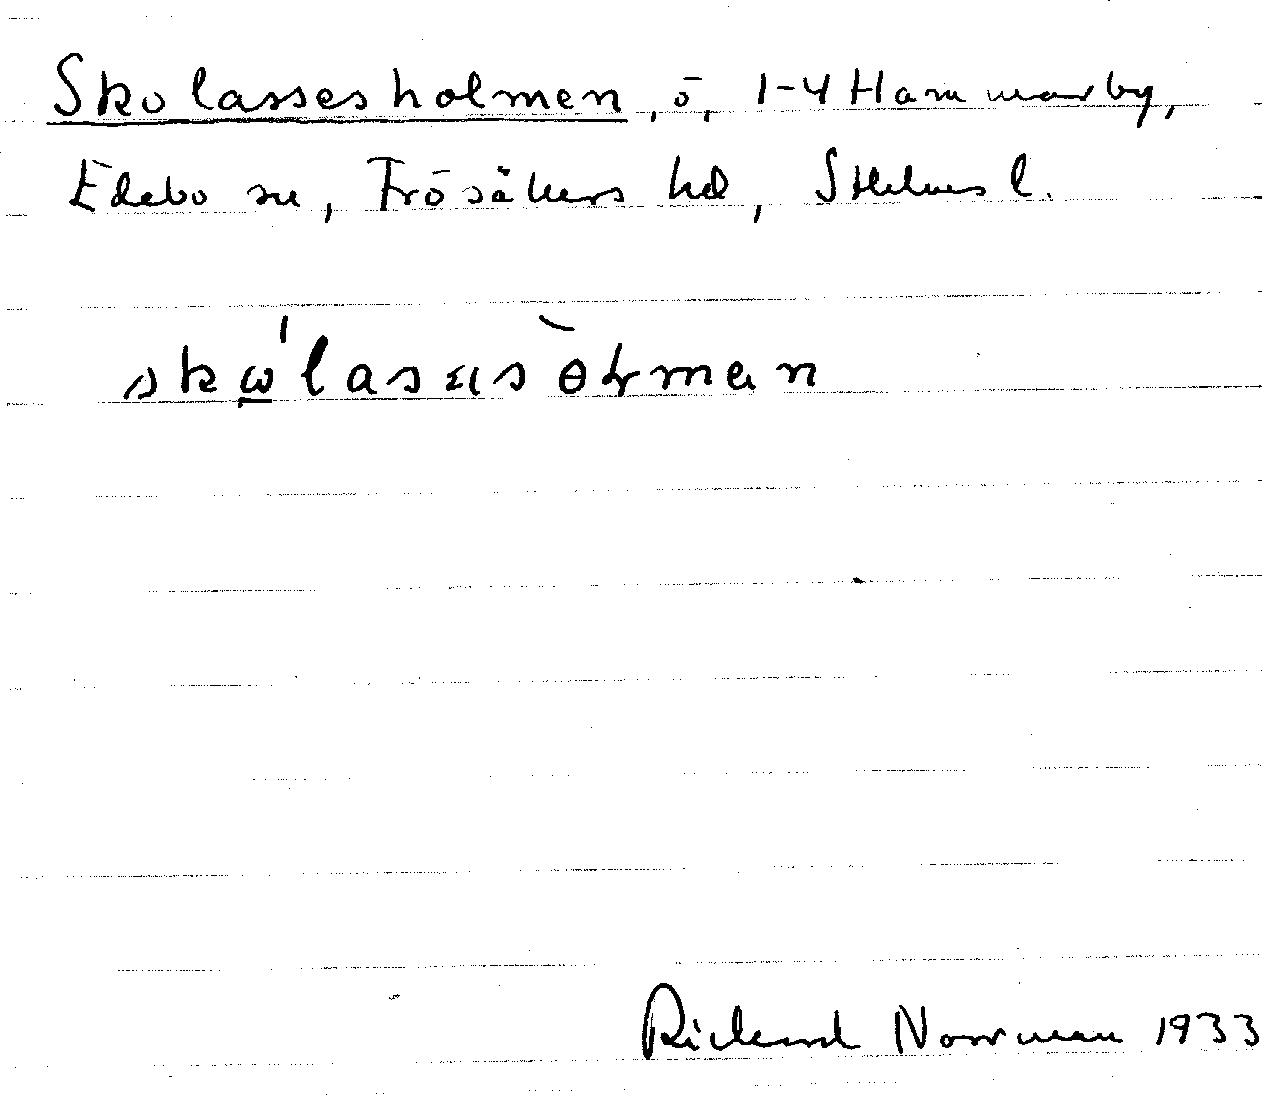 Skolassesholmen, ö, 1-4 Hammarby,
Edebo sn, Frösåkers hd, Sthlms l.
skω̲'lasəsòɫmən
Rickard Norrman 1933